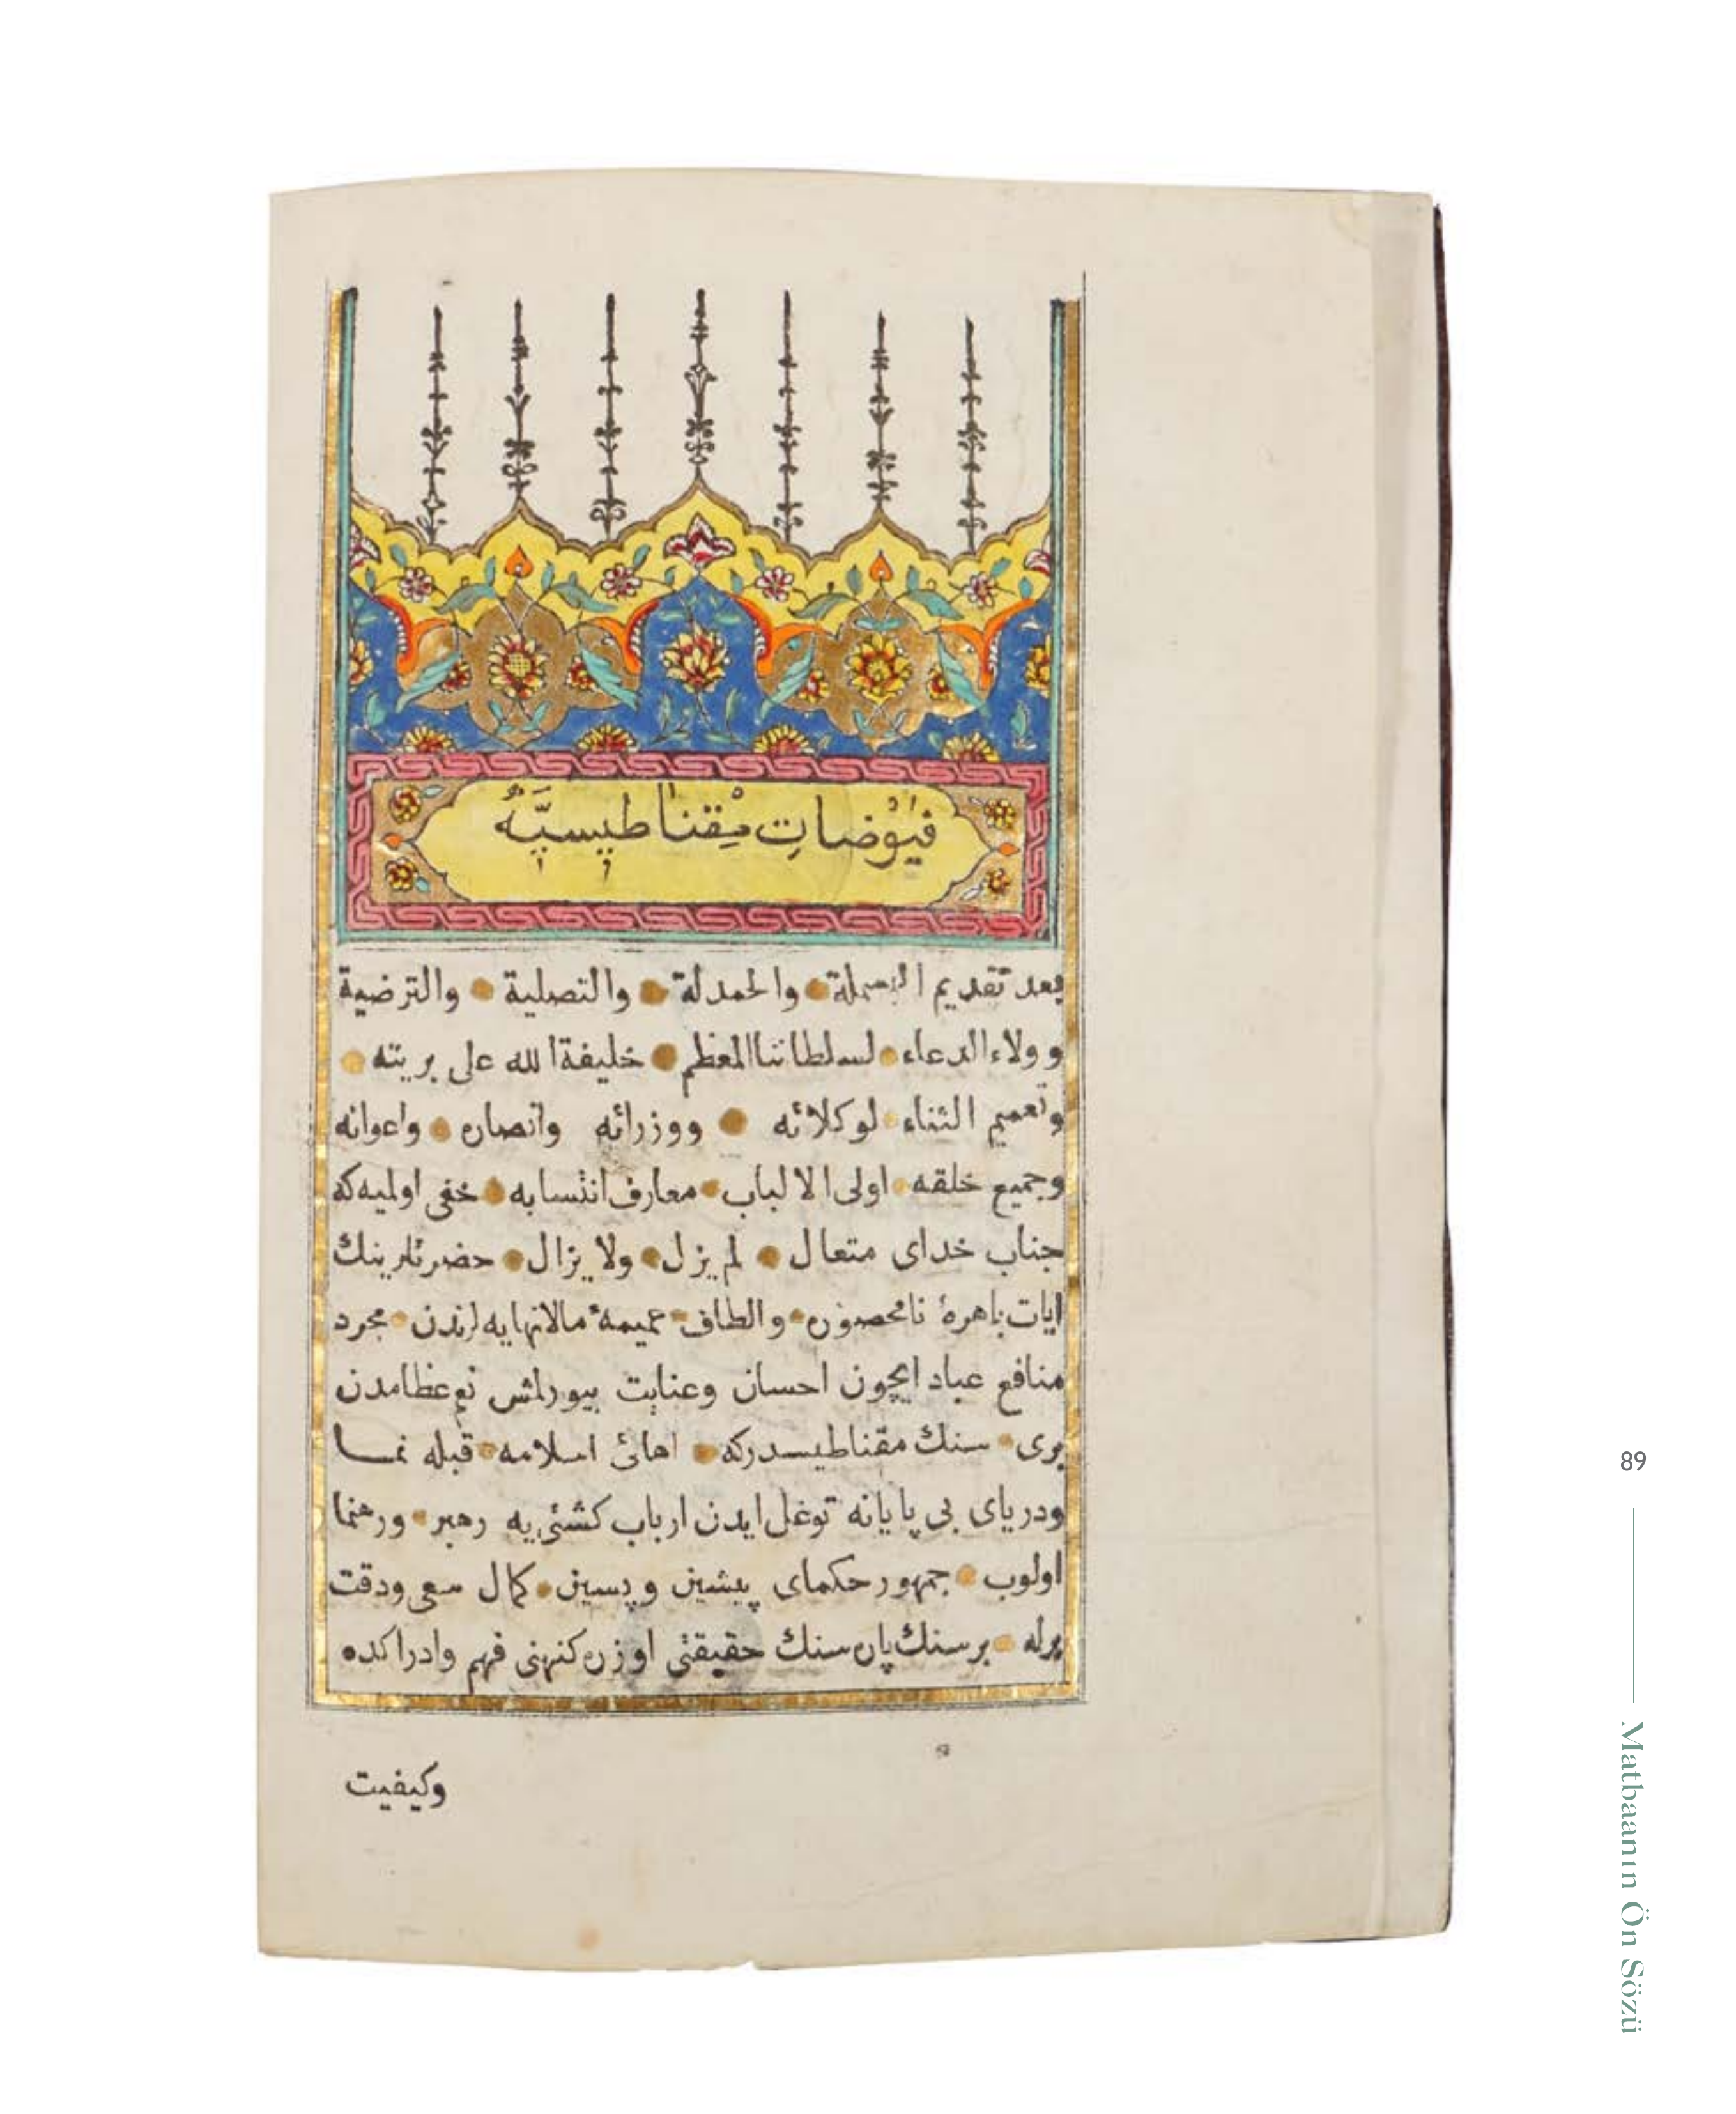 فيوضات مقناطيسيه
بعد تقديم البسملة والحمدلة والتصلية والترضية
وولاء الدعاء لسلطاننا المعظم خليفة الله على بريته
وتعميم الثناء لوكلائه ووزرائه وانصاره واعوانه
وجميع خلقه اولى الالباب معارف انتسابه خفى اوليه كه
جناب خداى متعال لم يزل ولا يزال حضرتلرينك
ايات باهرۀ نامحصوره والطاف عميمۀ مالانهايه لرندن مجرد
منافع عباد ايچون احسان وعنايت بيورلمش نعم عظامدن
برى سنك مقناطيسدركه اهالئ اسلامه قبله نما
ودرياى بى پايانه توغل ايدن ارباب كشتى يه رهبر ورهنما
اولوب جمهور حكماى پيشين وپسين كمال سعى ودقت
برله بر سنكپاره سنك حقيقتى اوزره كنهنى فهم وادراكده
وكيفيت
89
Matbaanın Ön Sözü